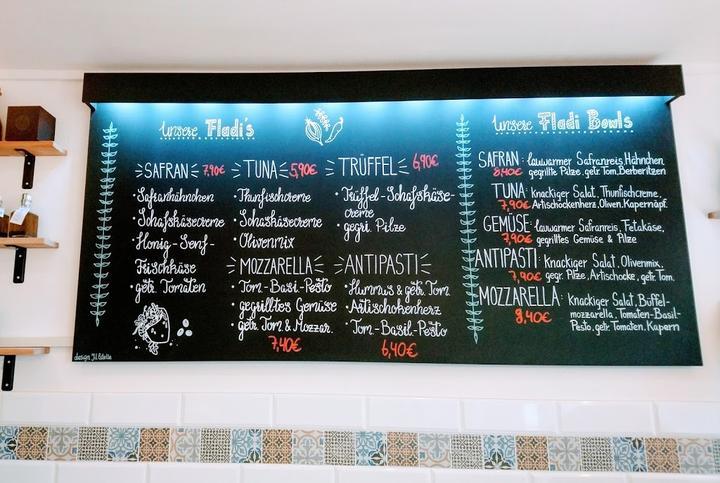 unsere Fladi's
SAFRAN 7,90€
• Safranhähnchen
• Schafskäsecreme
• Honig-Senf-
Frischkäse
• getr. Tomaten
TUNA 5,90€
• Thunfischcreme
• Schafskäsecreme
• Olivenmix
TRÜFFEL 6,90€
• Trüffel-Schafskäse-
creme
• gegri. Pilze
MOZZARELLA
• Tom-Basi-Pesto
• gegrilltes Gemüse
• getr. Tom & Mozzar.
7,40€
ANTIPASTI
• Hummus & getr. Tom
• Artischokenherz
• Tom-Basil-Pesto
6,40€
unsere Fladi Bowls
SAFRAN: lauwarmer Safranreis, Hähnchen,
8,40€ gegrillte Pilze, getr. Tom, Berberitzen
TUNA: knackiger Salat, Thunfischcreme,
7,90€ Artischockenherz, Oliven, Kapernäpf.
GEMÜSE: lauwarmer Safranreis, Fetakäse,
7,90€ gegrilltes Gemüse & Pilze
ANTIPASTI: Knackiger Salat, Olivenmix,
7,40€ gegr. Pilze, Artischocke, getr. Tom.
MOZZARELLA: knackiger Salat, Büffel-
8,40€ mozzarella, Tomaten-Basil-
Pesto, getr. Tomaten, Kapern